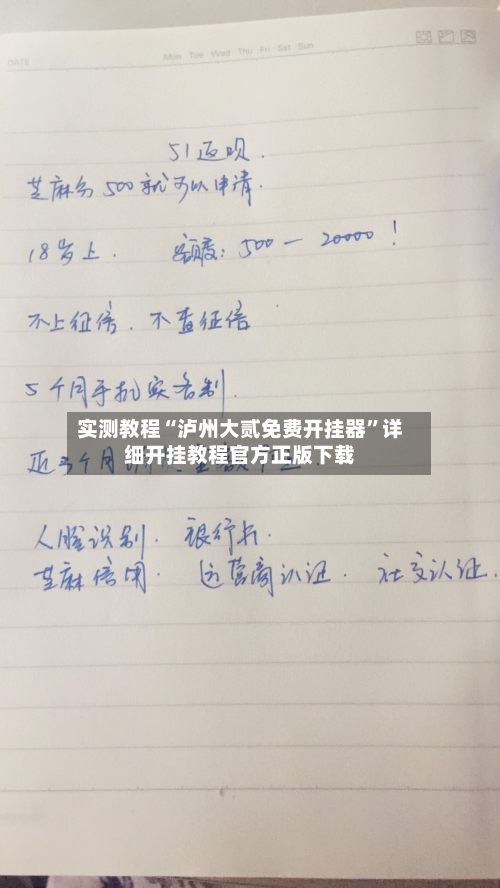 DATE
Mon Tue Wed Thu Fri Sat Sun
51返呗.
芝麻分500就可以申请.
18岁上. 额度: 500一20000!
不上征信. 不查征信
5个月手机实名制.
实测教程“泸州大贰免费开挂器”详
细开挂教程官方正版下载
近3个月
人脸识别. 银行卡.
芝麻信用. 运营商认证. 社交认证.